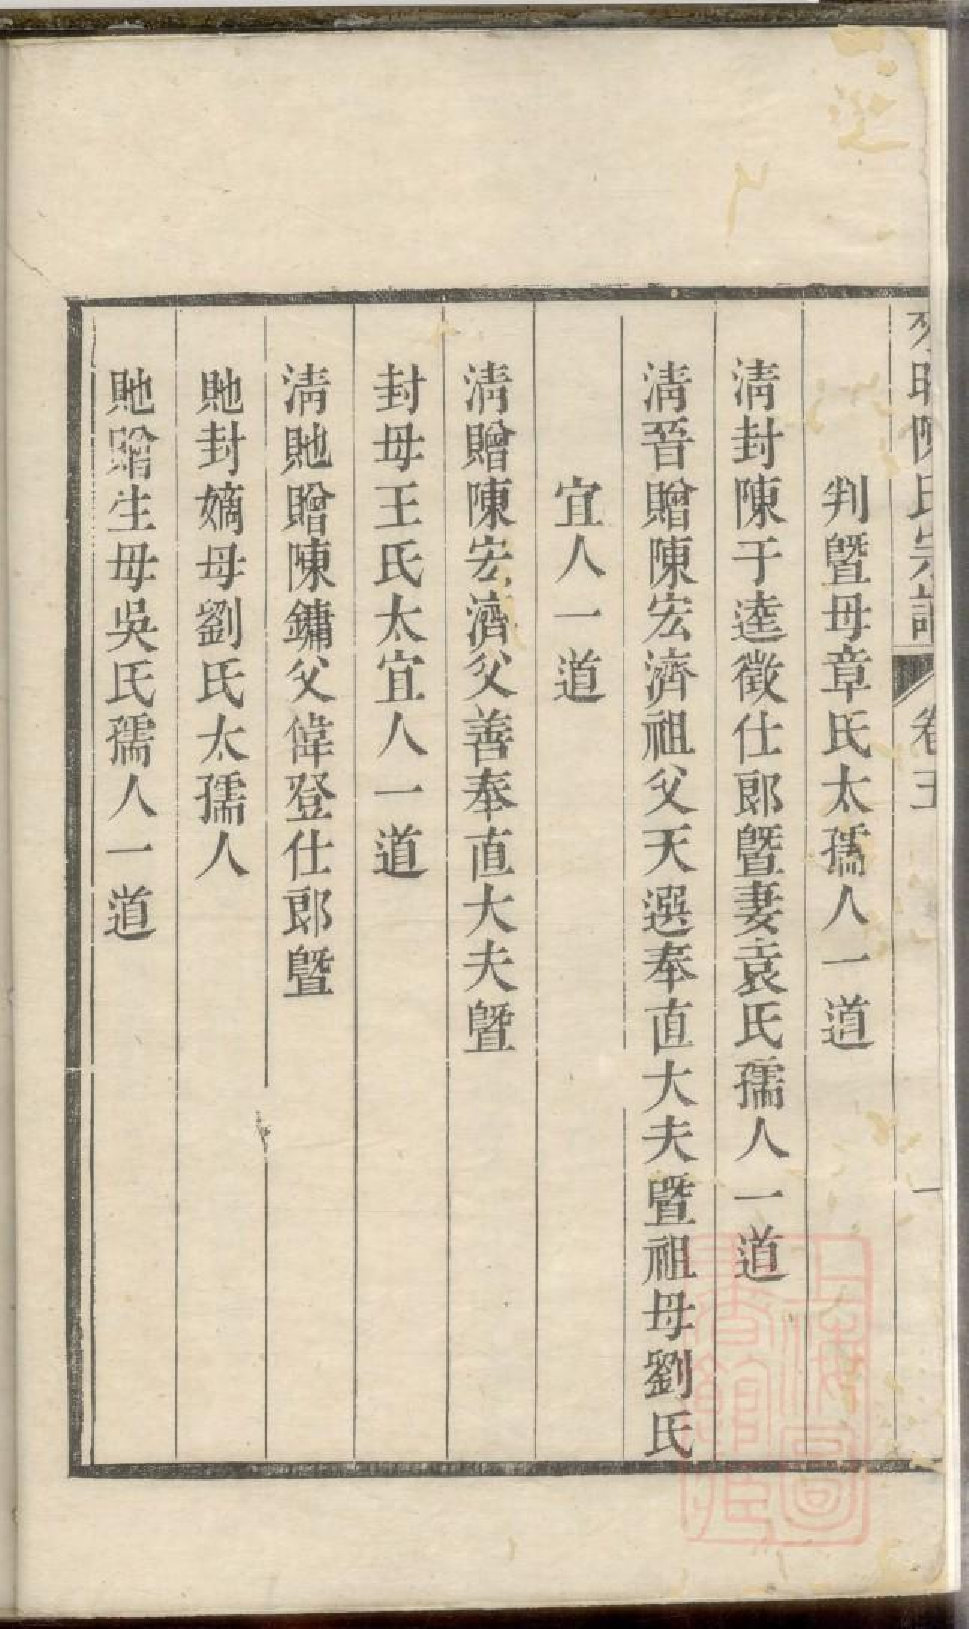 陳氏宗譜 卷五 一
判暨母章氏太孺人一道
淸封陳于逵徵仕郞暨妻袁氏孺人一道
淸晉贈陳宏濟祖父天選奉直大夫暨祖母劉氏
宜人一道
淸贈陳宏濟父善奉直大夫暨
封母王氏太宜人一道
淸貤贈陳鏞父偉登仕郞暨
貤封嫡母劉氏太孺人
貤贈生母吳氏孺人一道
上海圖書館藏